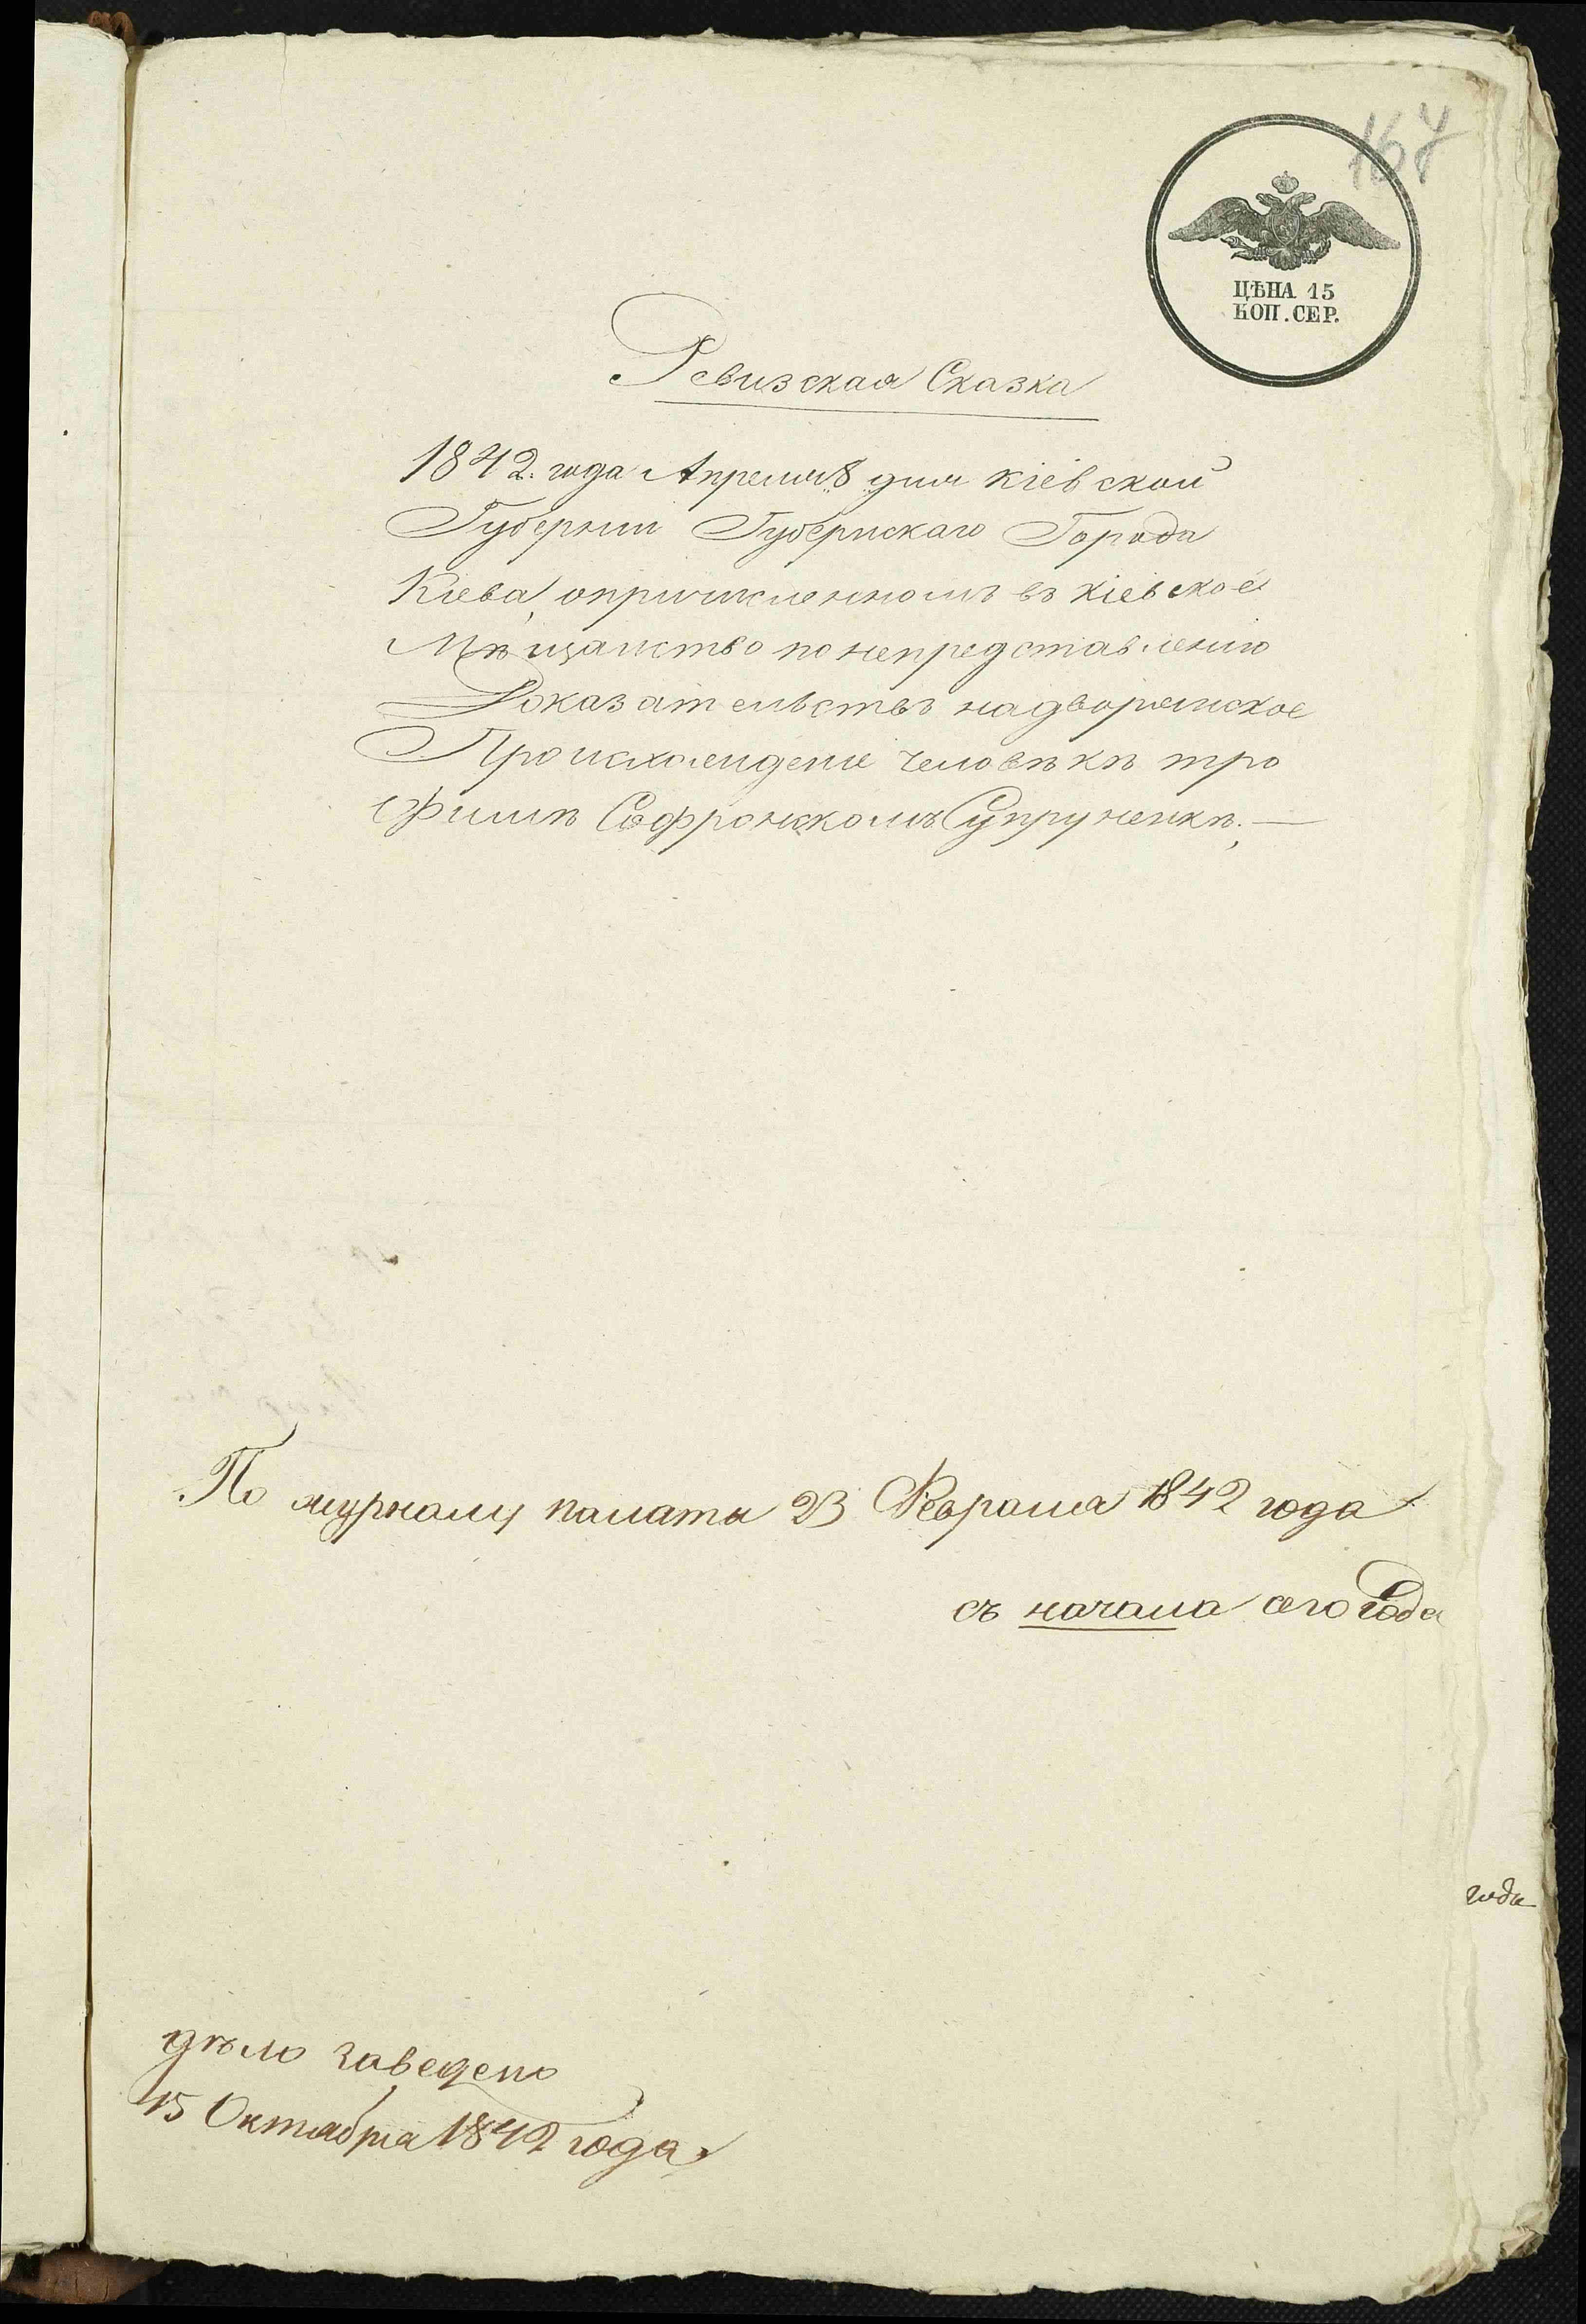 167
ЦѢНА 15
КОП. СЕР.
Ревизская Сказка
1842. года Апреля 8 дня Кіевской
Губерніи Губернскаго Города
Кіева, опричисленномъ въ Кіевское
Мѣщанство по непредставленію
Доказательствъ надворянское
Происхожденіе человѣкѣ тро
Филиѣ Софронскомъ Супруненкѣ. —
По журналу палаты 23 Февраля 1842 года
съ начала сего Года
года
дѣло заведено
15 Октября 1842 года